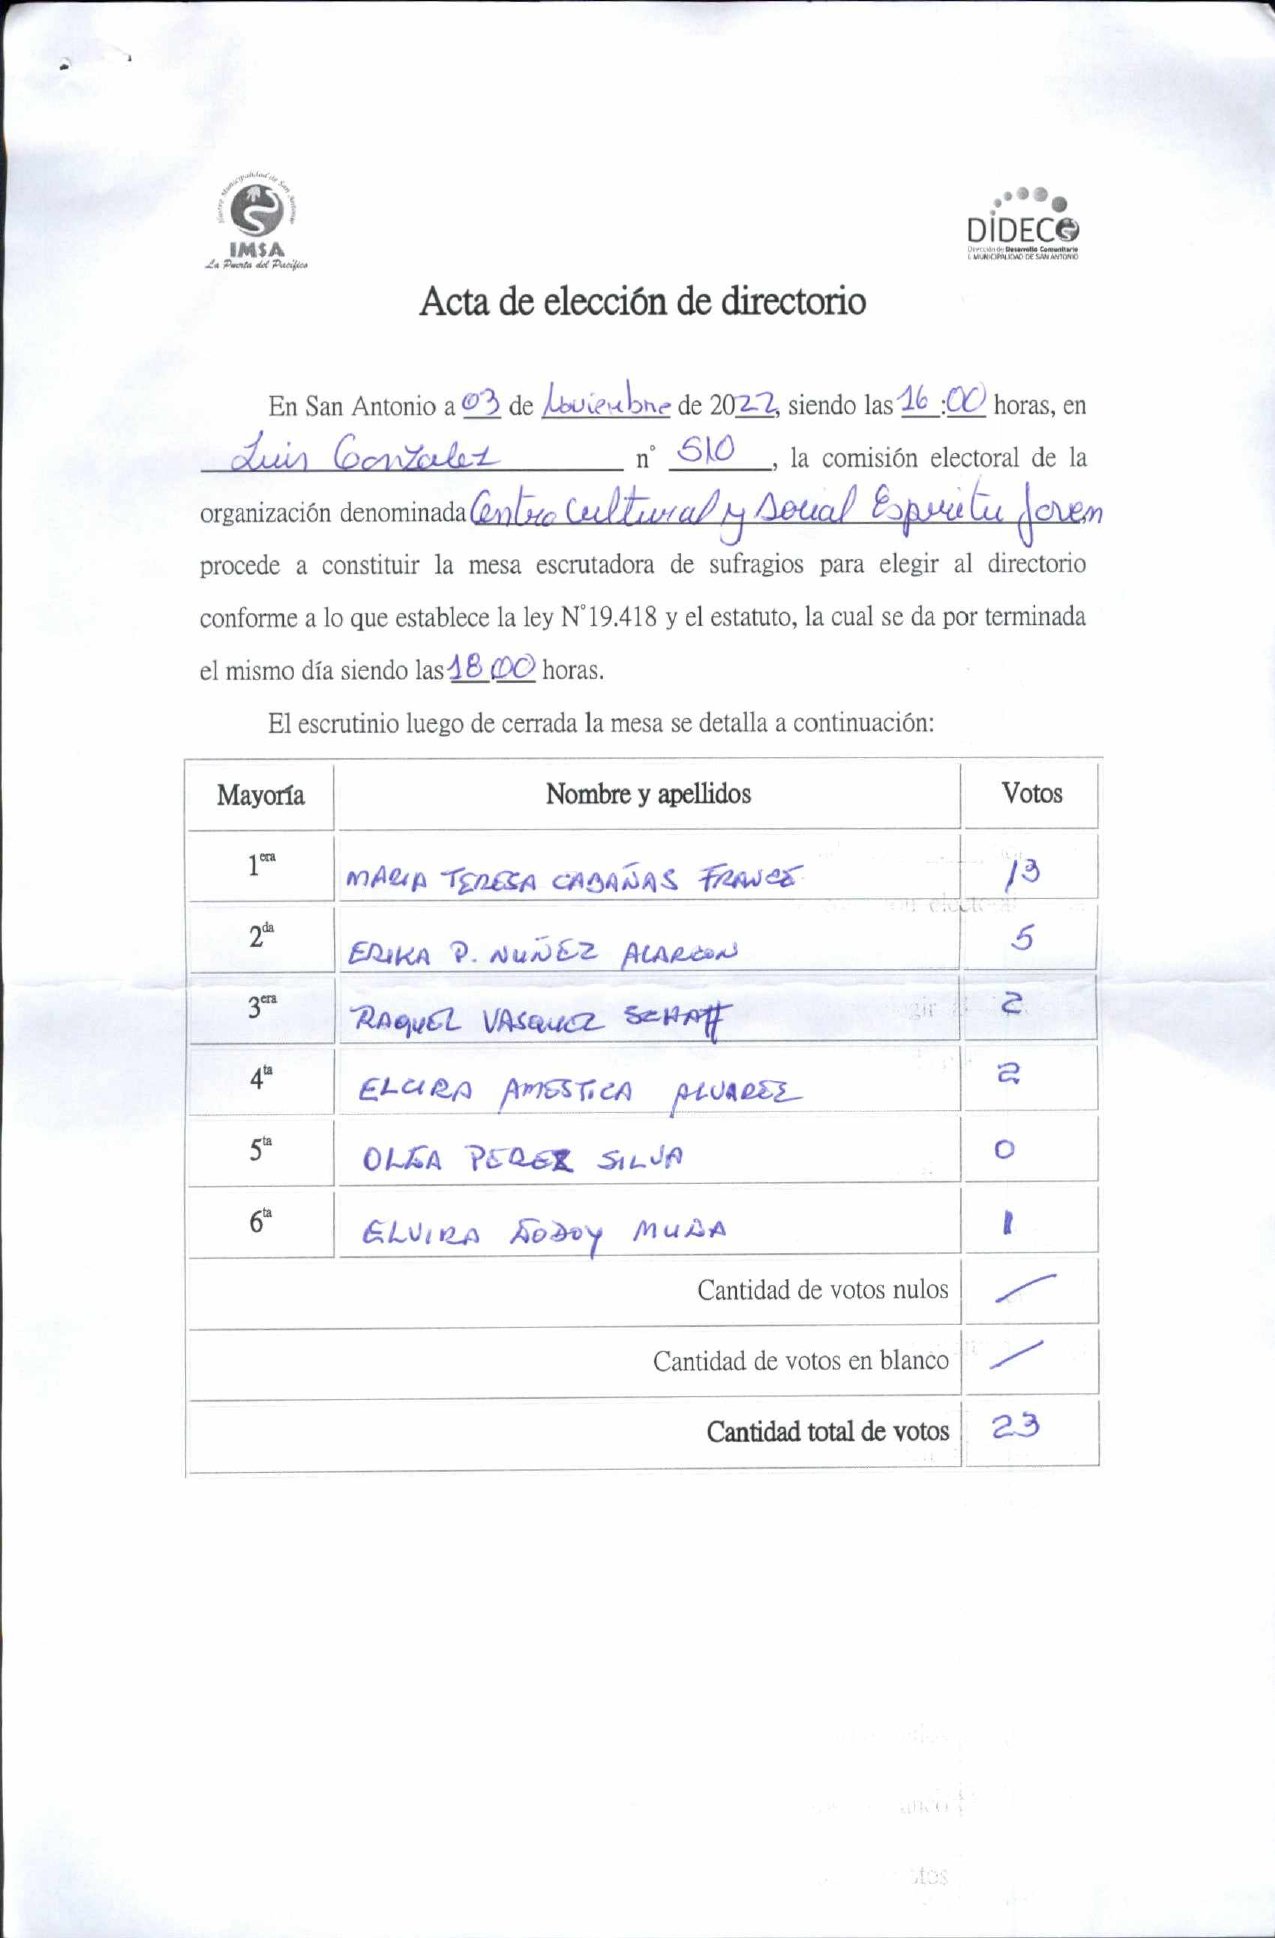 Ilustre Municipalidad de San Antonio
IMSA
La Puerta del Pacífico
DIDECO
Dirección de Desarrollo Comunitario
I. MUNICIPALIDAD DE SAN ANTONIO
Acta de elección de directorio
En San Antonio a 03 de Noviembre de 2022, siendo las 16:00 horas, en
Luis Gonzalez n° 510, la comisión electoral de la
organización denominada Centro Cultural y Social Espiritu Joven
procede a constituir la mesa escrutadora de sufragios para elegir al directorio
conforme a lo que establece la ley N°19.418 y el estatuto, la cual se da por terminada
el mismo día siendo las 18:00 horas.
El escrutinio luego de cerrada la mesa se detalla a continuación:
Mayoría Nombre y apellidos Votos
1era MARIA TERESA CABAÑAS 13
2da ERIKA P. NUÑEZ ALARCON 5
3era RAQUEL VASQUEZ SCHAFF 2
4ta ELCIRA AMESTICA ALVAREZ 2
5ta OLGA PEREZ SILVA 0
6ta ELVIRA GODOY 1
Cantidad de votos nulos /
Cantidad de votos en blanco /
Cantidad total de votos 23